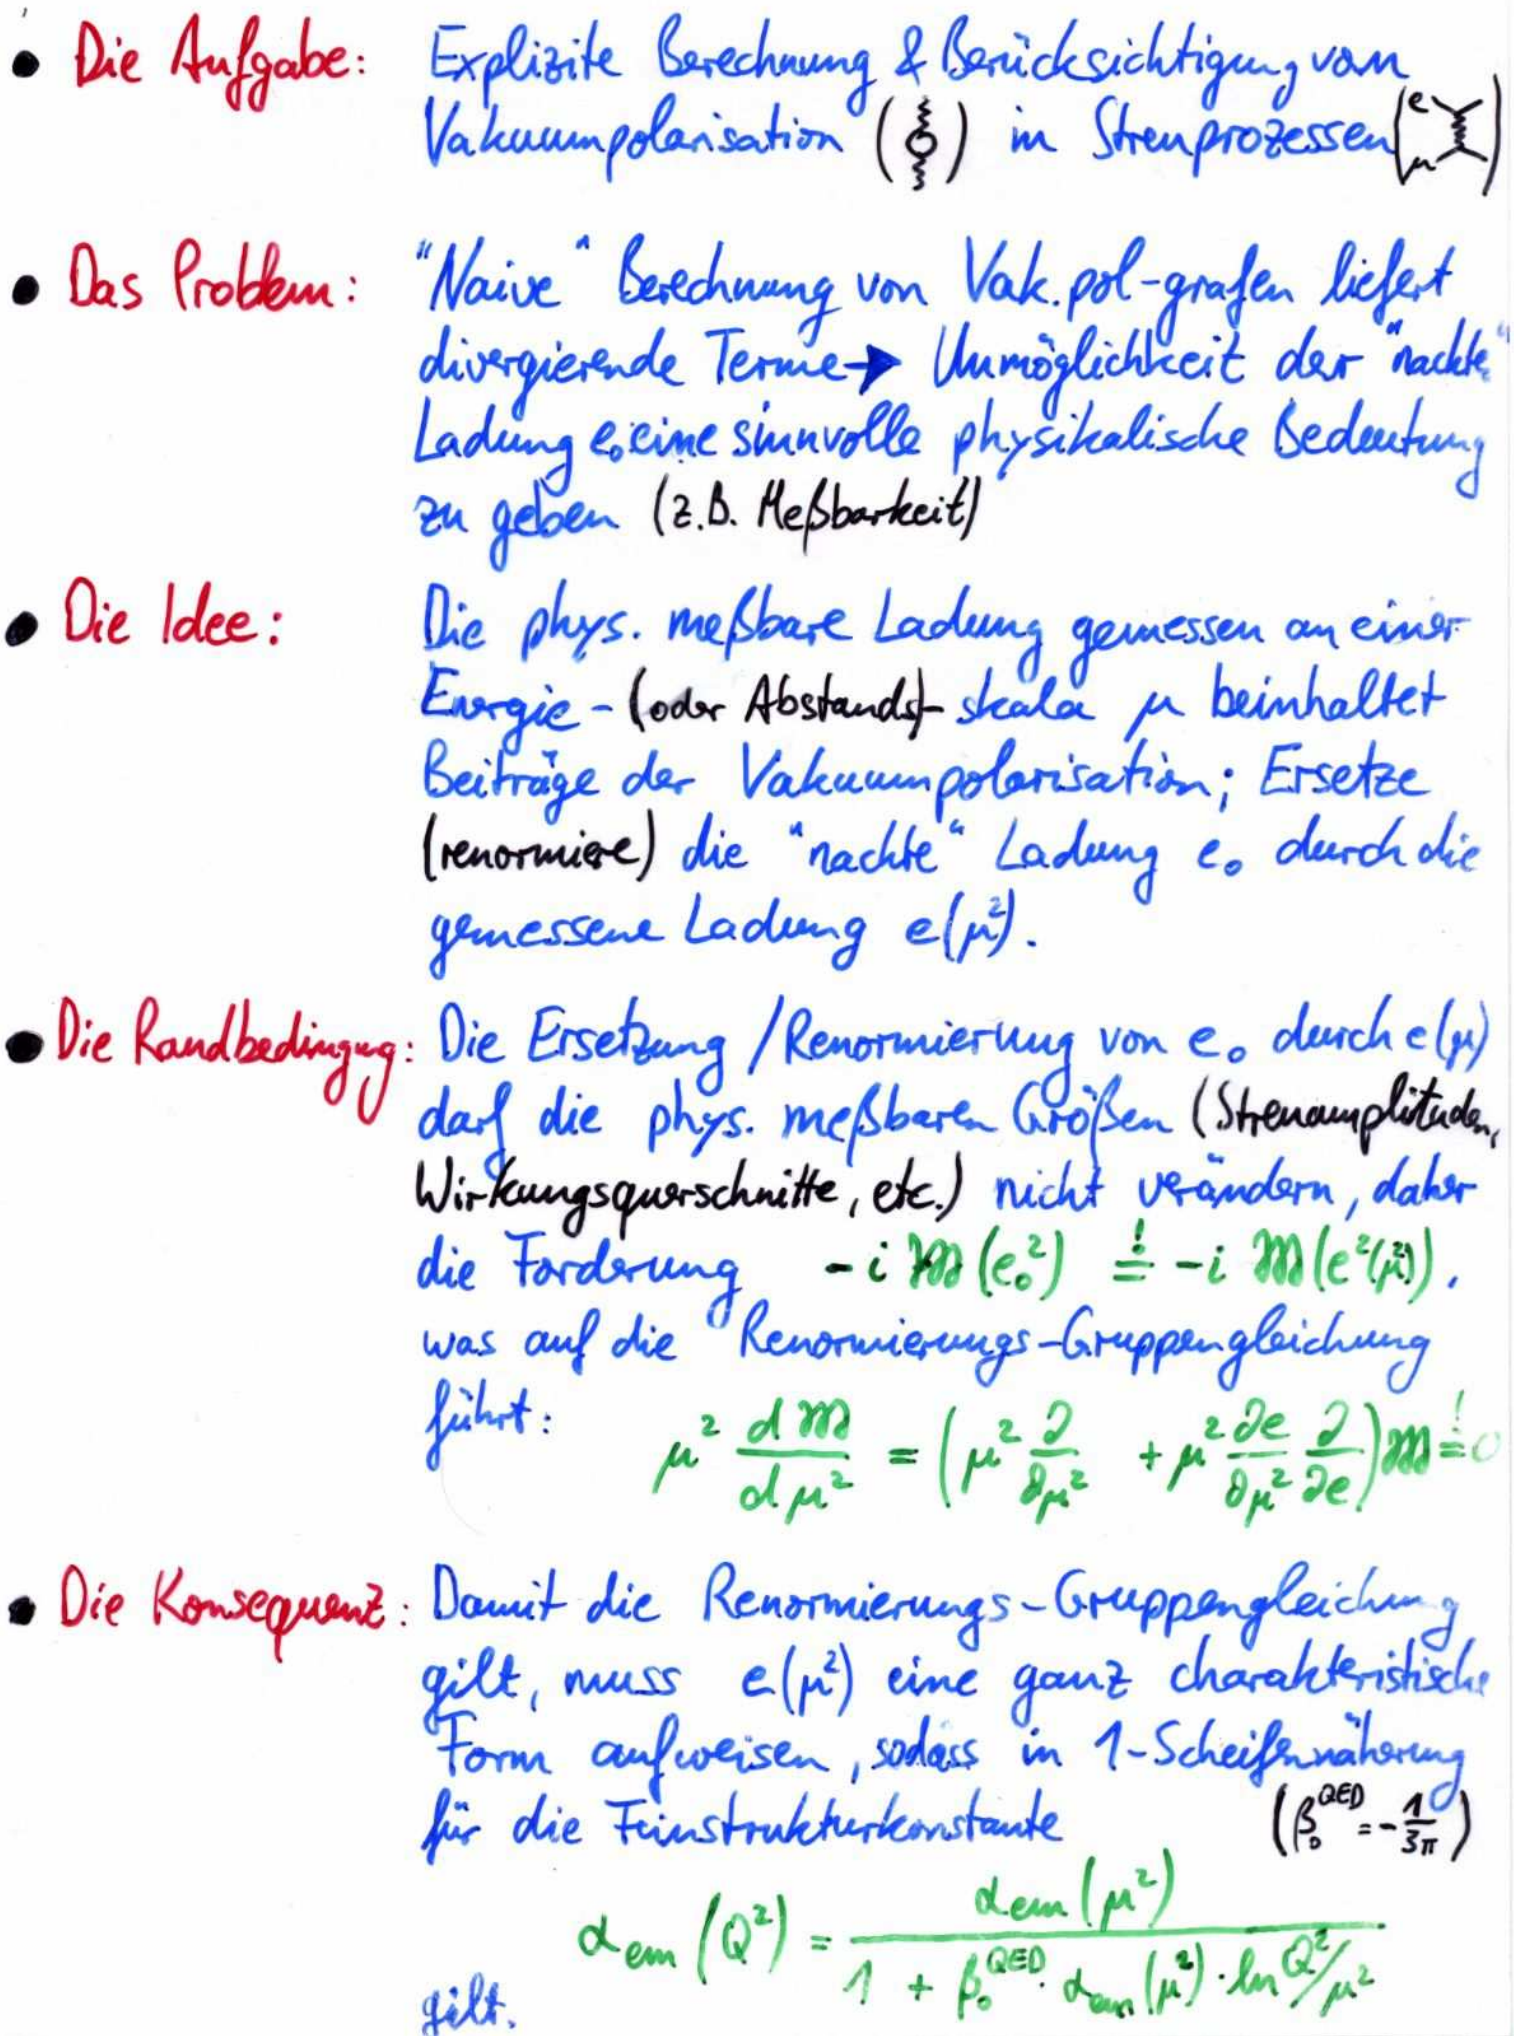 • Die Aufgabe: Explizite Berechnung & Berücksichtigung von
Vakuumpolarisation ( ) in Streuprozessen (e μ)
• Das Problem: "Naive" Berechnung von Vak.pol-grafen liefert
divergierende Terme → Unmöglichkeit der "nackte"
Ladung e₀ eine sinnvolle physikalische Bedeutung
zu geben (z.B. Meßbarkeit)
• Die Idee: Die phys. meßbare Ladung gemessen an einer
Energie-(oder Abstands)-skala μ beinhaltet
Beiträge der Vakuumpolarisation; Ersetze
(renormiere) die "nackte" Ladung e₀ durch die
gemessene Ladung e(μ²).
• Die Randbedingung: Die Ersetzung/Renormierung von e₀ durch e(μ)
darf die phys. meßbaren Größen (Streuamplituden,
Wirkungsquerschnitte, etc.) nicht verändern, daher
die Forderung -i 𝔐(e₀²) ≝ -i 𝔐(e²(μ²)),
was auf die Renormierungs-Gruppengleichung
führt: μ² d𝔐/dμ² = (μ² ∂/∂μ² + μ² ∂e/∂μ² ∂/∂e) 𝔐 =! 0
• Die Konsequenz: Damit die Renormierungs-Gruppengleichung
gilt, muss e(μ²) eine ganz charakteristische
Form aufweisen, sodass in 1-Scheifennäherung
für die Feinstrukturkonstante (β₀^QED = -1/3π)
α_em(Q²) = α_em(μ²) / (1 + β₀^QED · α_em(μ²) · ln Q²/μ²)
gilt.